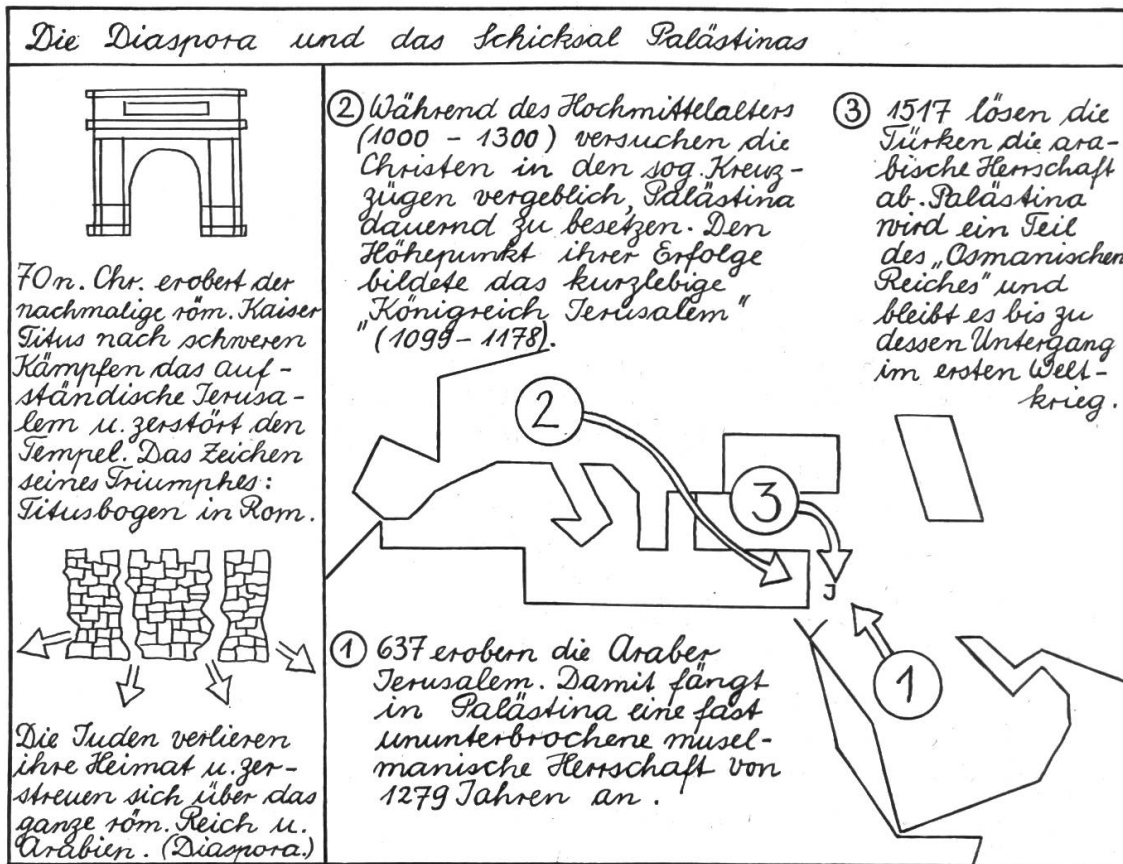 Die Diaspora und das Schicksal Palästinas
70 n. Chr. erobert der
nachmalige röm. Kaiser
Titus nach schweren
Kämpfen das auf-
ständische Jerusa-
lem u. zerstört den
Tempel. Das Zeichen
seines Triumphes:
Titusbogen in Rom.
Die Juden verlieren
ihre Heimat u. zer-
streuen sich über das
ganze röm. Reich u.
Arabien. (Diaspora.)
② Während des Hochmittelalters
(1000 - 1300) versuchen die
Christen in den sog. Kreuz-
zügen vergeblich, Palästina
dauernd zu besetzen. Den
Höhepunkt ihrer Erfolge
bildete das kurzlebige
"Königreich Jerusalem"
(1099 - 1178).
③ 1517 lösen die
Türken die ara-
bische Herrschaft
ab. Palästina
wird ein Teil
des „Osmanischen
Reiches" und
bleibt es bis zu
dessen Untergang
im ersten Welt-
krieg.
2
3
J
1
① 637 erobern die Araber
Jerusalem. Damit fängt
in Palästina eine fast
ununterbrochene musel-
manische Herrschaft von
1279 Jahren an.